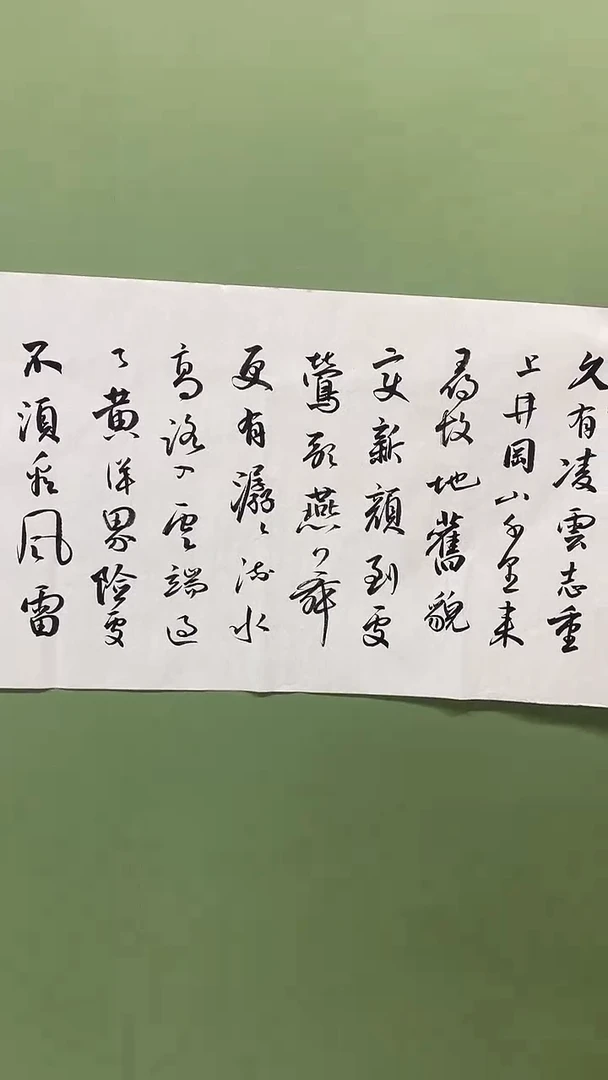 久有凌雲志重
上井岡山千里来
尋故地舊貌
変新顔到处
鶯歌燕又舞
更有潺〻流水
高路入雲端過
了黄洋界險处
不須看風雷